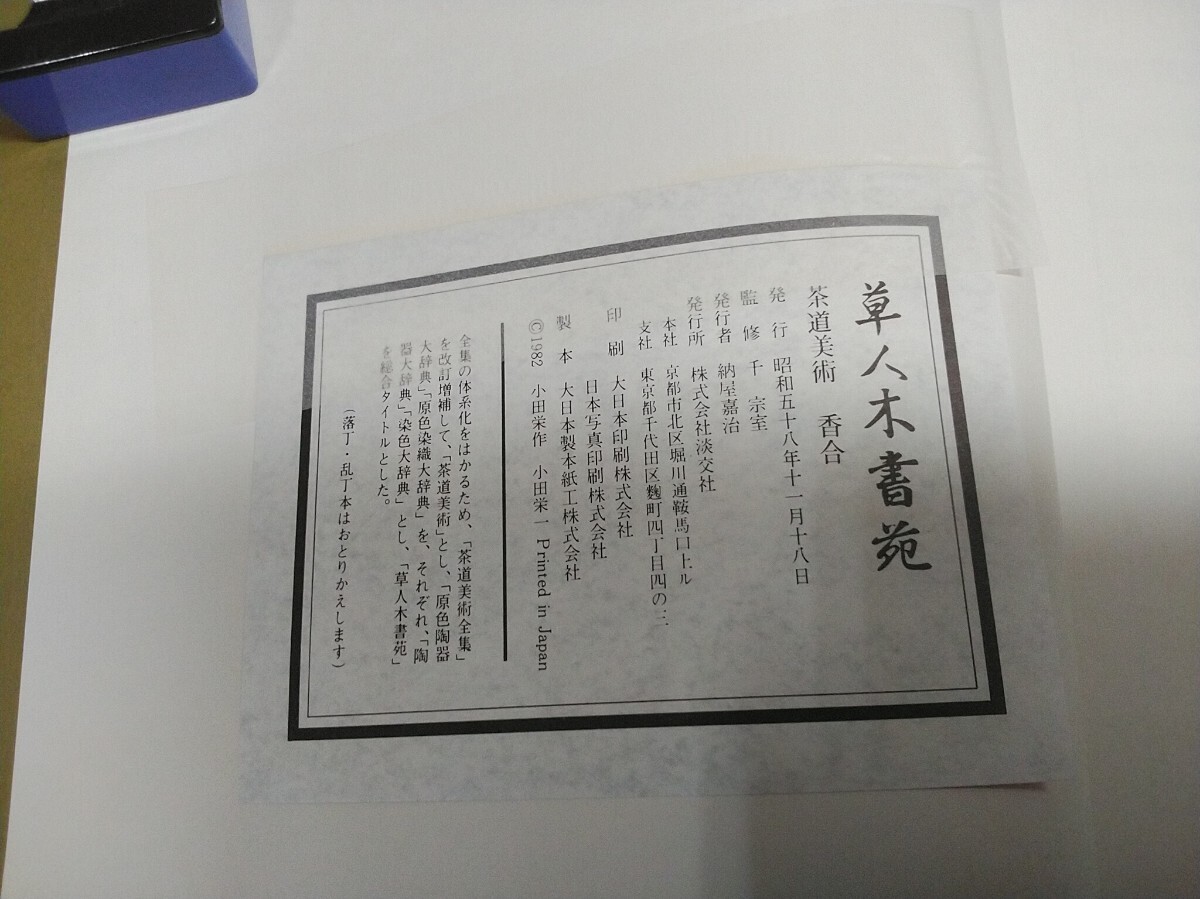 草人木書苑
茶道美術 香合
発行 昭和五十八年十一月十八日
監修 千 宗室
発行者 納屋嘉治
発行所 株式会社淡交社
本社 京都市北区堀川通鞍馬口上ル
支社 東京都千代田区麴町四丁目四の三
印刷 大日本印刷株式会社
日本写真印刷株式会社
製本 大日本製本紙工株式会社
©1982 小田栄作 小田栄一 Printed in Japan
全集の体系化をはかるため、「茶道美術全集」
を改訂増補して、「茶道美術」とし、「原色陶器
大辞典」「原色染織大辞典」を、それぞれ、「陶
器大辞典」「染色大辞典」とし、「草人木書苑」
を総合タイトルとした。
（落丁・乱丁本はおとりかえします）